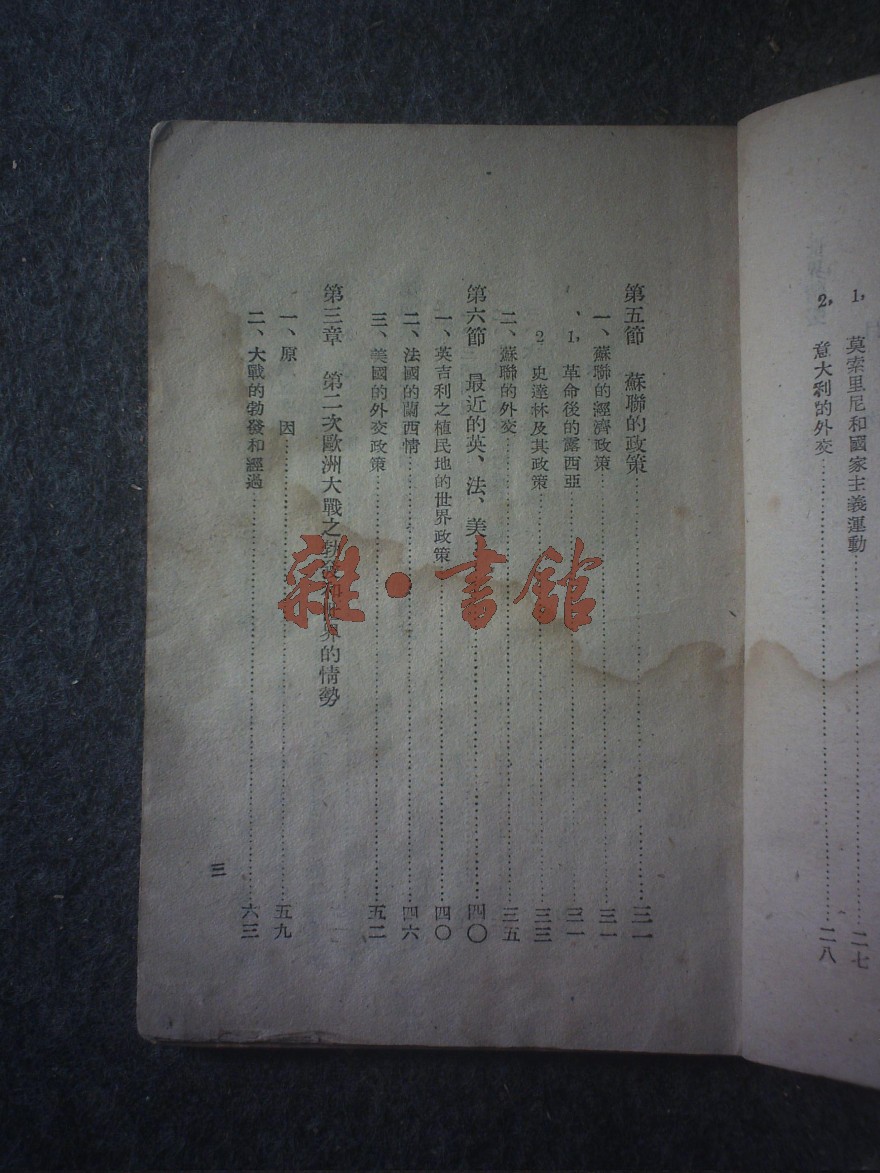 1, 莫索里尼和國家主義運動……二七
2, 意大利的外交……二八
第五節 蘇聯的政策……三一
一、蘇聯的經濟政策……三一
、1, 革命後的露西亞……三一
2 史達林及其政策……三三
二、蘇聯的外交……三五
第六節 最近的英、法、美……四〇
一、英吉利之植民地的世界政策……四〇
二、法國的蘭西情……四六
三、美國的外交政策……五二
第三章 第二次歐洲大戰之勃發和世界的情勢
一、原 因……五九
二、大戰的勃發和經過……六三
三
雜·書館